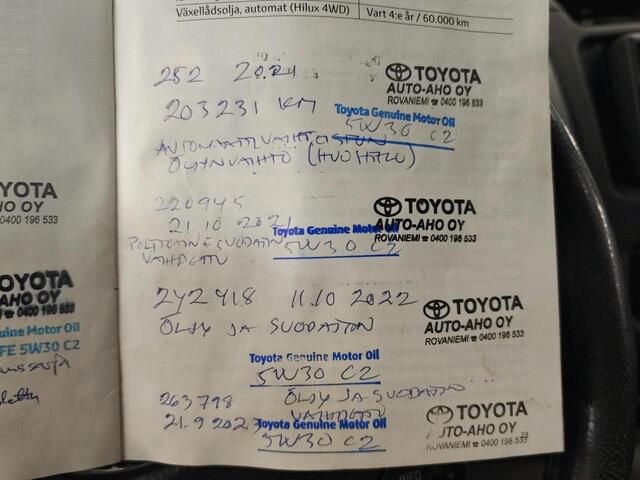 Växellådsolja, automat (Hilux 4WD) Vart 4:e år / 60.000 km
TOYOTA
AUTO-AHO OY
ROVANIEMI ☎ 0400 196 533
203231 KM
Toyota Genuine Motor Oil
5W30 C2
ÖLJYNVAIHTO (HUOHTELU)
220945
21.10 2021
TOYOTA
AUTO-AHO OY
ROVANIEMI ☎ 0400 196 533
Toyota Genuine Motor Oil
5W30 C2
POLTTOAINESUODATIN
VAIHDETTU
242918 11.10 2022
ÖLJY JA SUODATTON
TOYOTA
AUTO-AHO OY
ROVANIEMI ☎ 0400 196 533
Toyota Genuine Motor Oil
5W30 C2
263798 ÖLJY JA SUODATTON
VAIHDETTU
21.9 2023
Toyota Genuine Motor Oil
5W30 C2
TOYOTA
AUTO-AHO OY
ROVANIEMI ☎ 0400 196 533
TOYOTA
TO-AHO OY
0400 196 533
TOYOTA
O-AHO OY
0400 196 533
uine Motor Oil
FE 5W30 C2